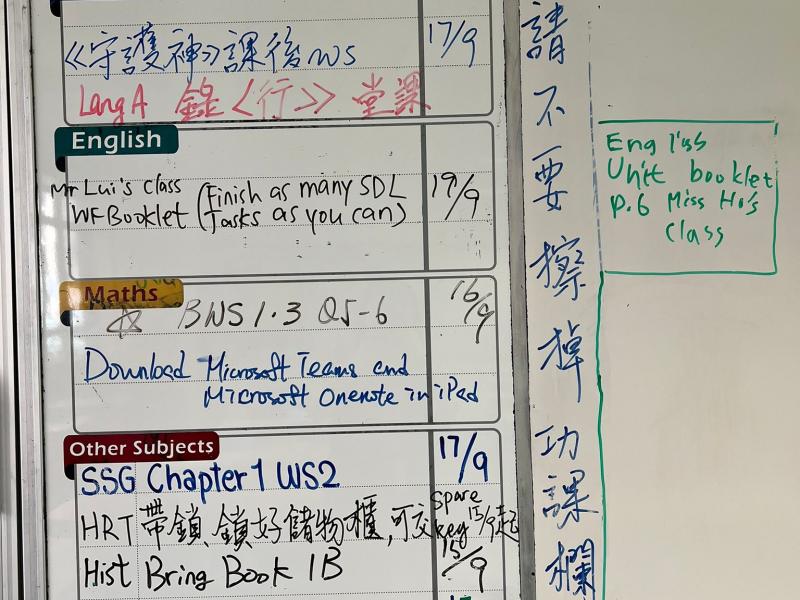 《守護神》課後WS 17/9
Lang A 錄〈行》 堂課
English
Mr Lui's class
WF Booklet (Finish as many SDL Tasks as you can) 19/9
Maths
☆ BWS 1.3 Q5-6 16/9
Download Microsoft Teams and
Microsoft Onenote in iPad
Other Subjects
SSG Chapter 1 WS2 17/9
HRT 帶鎖、鎖好儲物櫃,可交 spare key 15/9起
Hist Bring Book 1B 15/9
請不要擦掉功課欄
English
Unit booklet
p.6 Miss Ho's
Class